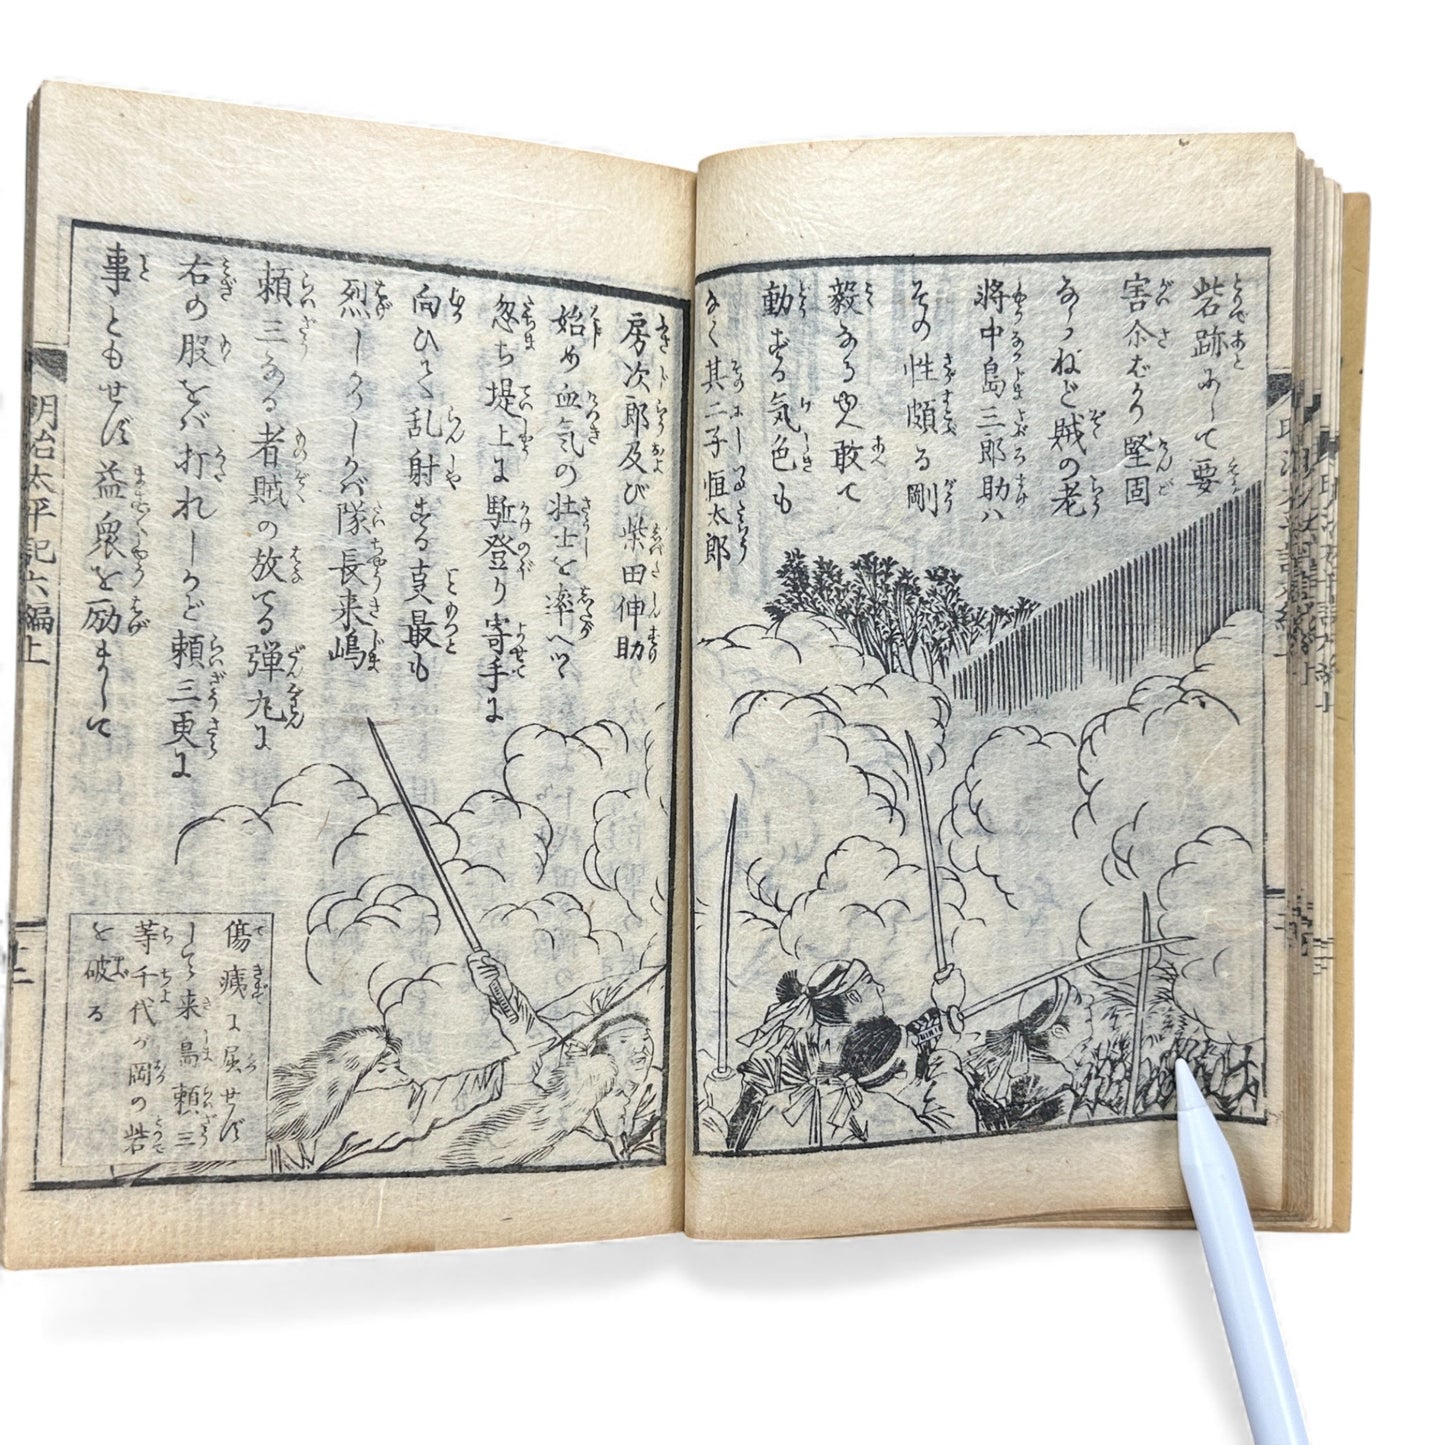 砦跡にて要
害尓ばかり堅固
ならねど賊の老
将中島三郎助ハ
その性頗る剛
毅なる也敢て
動ずる気色も
なく其二子恒太郎
房次郎及び柴田伸助
始め血気の壮士を率へて
忽ち堤上に駈登り寄手に
向ひて乱射する叓最も
烈しかりしかバ隊長来嶋
頼三なる者賊の放てる弾丸に
右の股をバ打れしかど頼三更に
事ともせず益衆を励まして
傷痍に屈せず
して来島頼三
等千代が岡の砦
を破る
明治太平記六編上